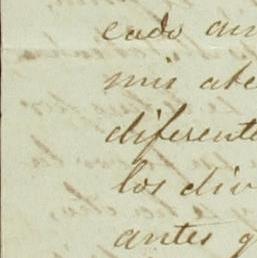 cado an
mis ate
diferente
los div
antes q